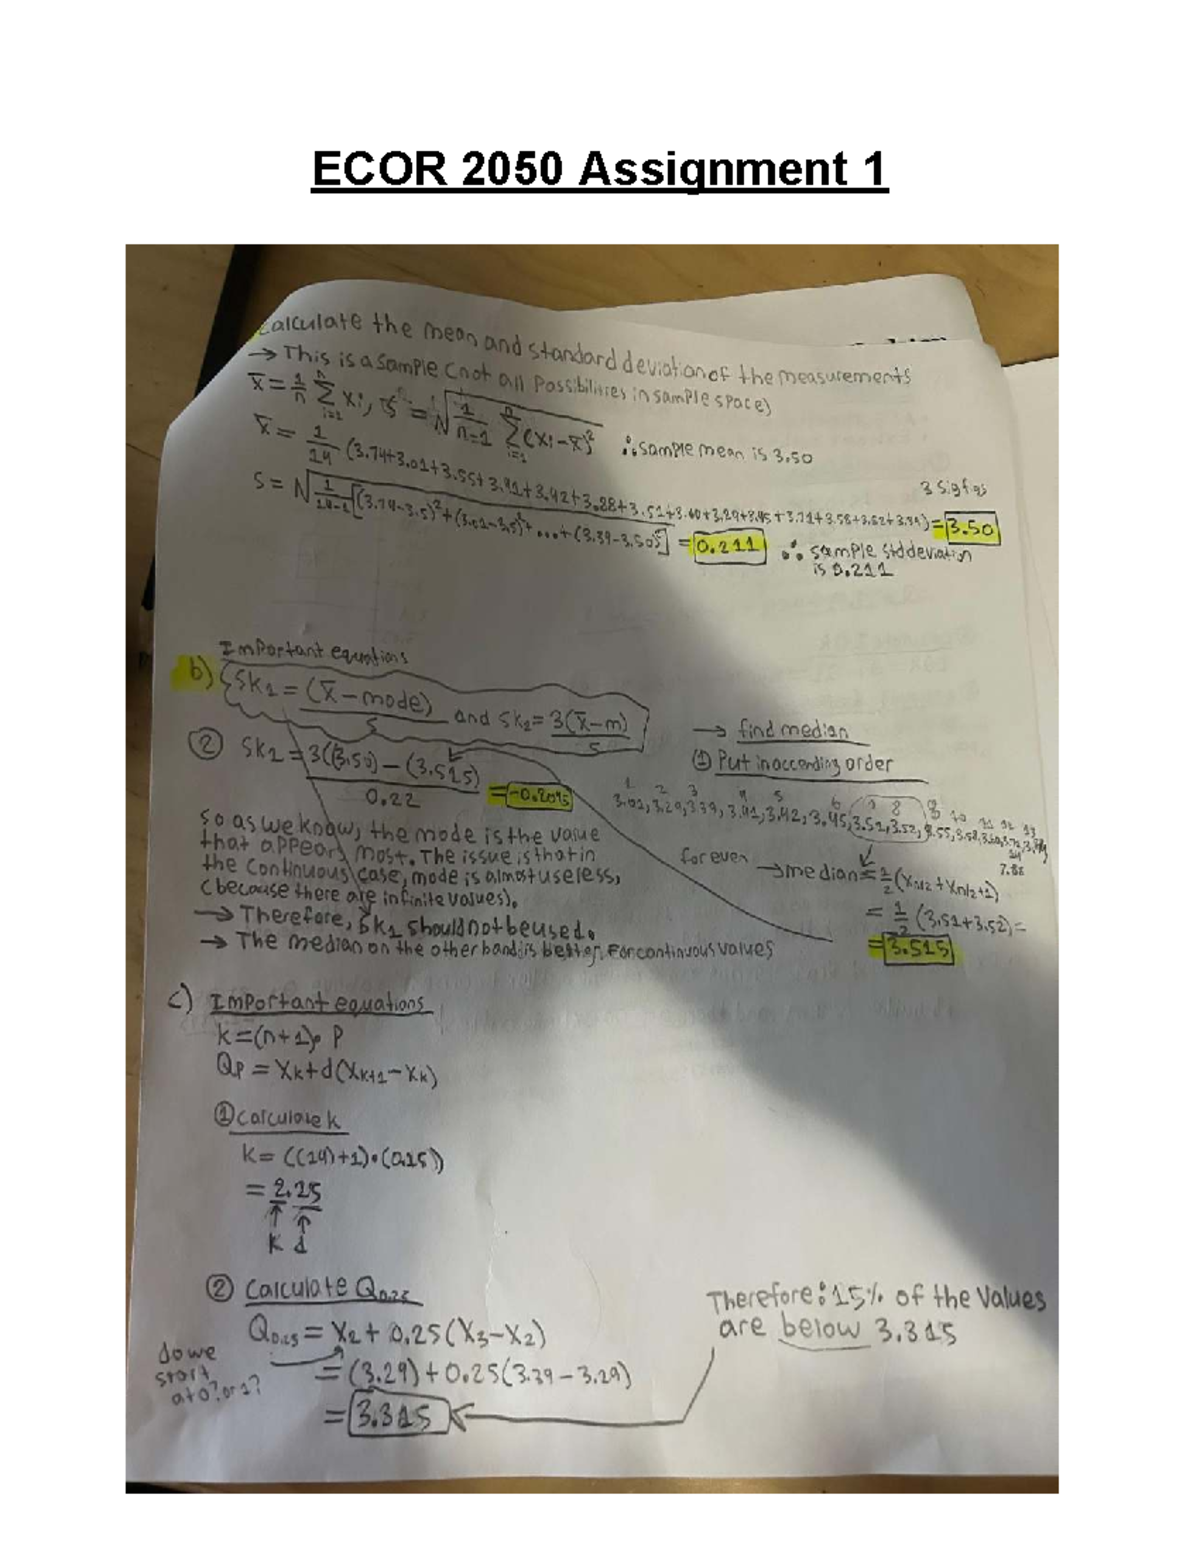 ECOR 2050 Assignment 1
Calculate the mean and standard deviation of the measurements
→ This is a sample (not all possibilities in sample space)
x̄ = 1/n Σ xi, s = √(1/(n-1) Σ(xi - x̄)²) ∴ sample mean is 3.50
x̄ = 1/14 (3.74+3.01+3.55+3.41+3.42+3.88+3.51+3.60+3.29+3.45+3.71+3.58+3.52+3.39) = 3.50
3 sig figs
s = √(1/(14-1)[(3.74-3.5)²+(3.01-3.5)²+...+(3.39-3.50)²] = 0.211 ∴ sample std deviation
is 0.211
Important equations
b) Sk1 = (x̄ - mode)/s and Sk2 = 3(x̄ - m)/s
→ find median
① Put in accending order
② Sk2 = 3((3.50) - (3.515)/0.22 = -0.2045
1 2 3 4 5 6 7 8 9 10 11 12 13
3.01, 3.29, 3.39, 3.41, 3.42, 3.45, 3.51, 3.52, 3.55, 3.58,
14
so as we know, the mode is the value
that appears most. The issue is that in
the continuous case, mode is almost useless,
(because there are infinite values).
→ Therefore, Sk1 should not be used.
→ The median on the other hand, is better for continuous values
for even → median = 1/2 (Xn/2 + Xn/2+1)
= 1/2 (3.51+3.52) =
= 3.515
c) Important equations
k = (n+1)• P
Qp = Xk + d(Xk+1 - Xk)
① Calculate k
k = ((14)+1)•(0.15))
= 2.25
↑ ↑
k d
② Calculate Q0.25
Q0.15 = X2 + 0.25(X3 - X2)
= (3.29) + 0.25(3.39 - 3.29)
= 3.315
do we
start
at 0? or 1?
Therefore: 15% of the values
are below 3.315